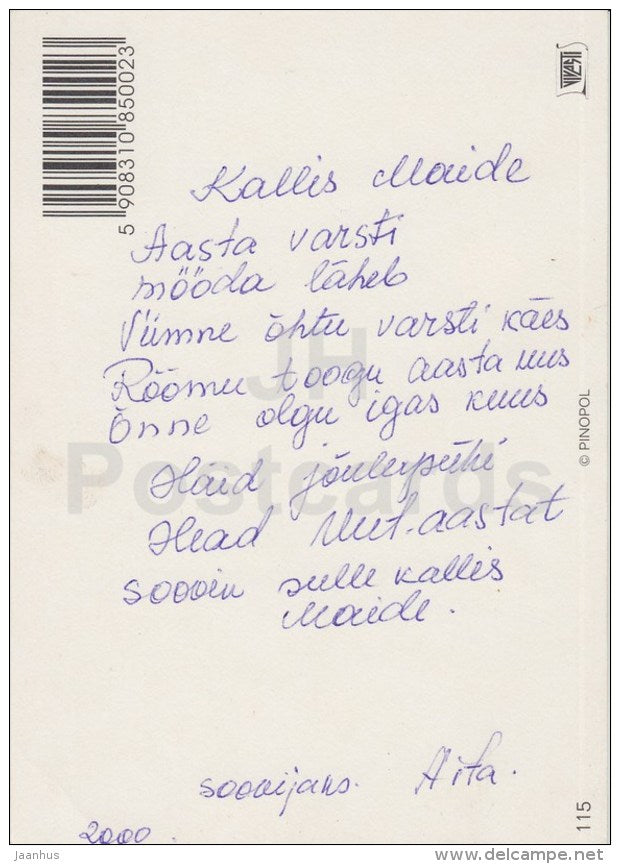 5 908310 850023
VIVASTI
Kallis Maide
Aasta varsti
mööda läheb
Viimne õhtu varsti käes
Rõõmu toogu aasta uus
Õnne olgu igas kuus
Haid jõulupühi
Head Uut-aastat
soovin sulle kallis
Maide.
soovijaks. Aita.
2000.
JH
Postcards
© PINOPOL
115
jaanhus
delcampe.net